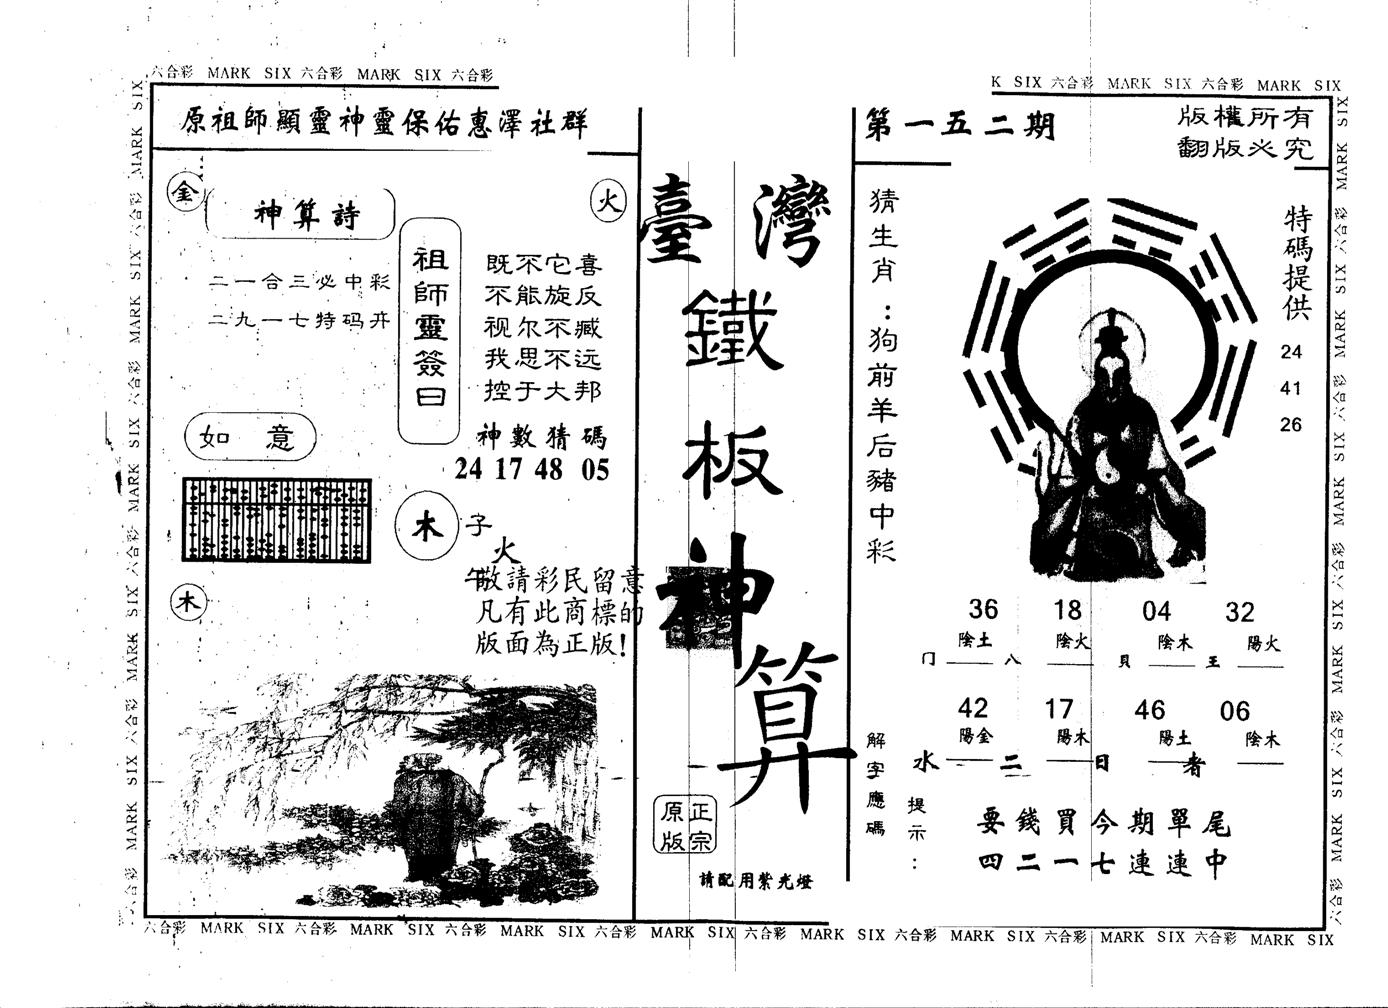 六合彩 MARK SIX 六合彩 MARK SIX 六合彩
K SIX 六合彩 MARK SIX 六合彩 MARK SIX
原祖師顯靈神靈保佑惠澤社群
金
神算詩
二一合三必中彩
二九一七特码开
祖師靈簽曰
火
既不它喜
不能旋反
视尔不臧
我思不远
控于大邦
神數猜碼
24 17 48 05
如意
木
子
火
午
木
敬請彩民留意
凡有此商標的
版面為正版!
臺灣
鐵
板
神
算
正宗
原版
請配用紫光燈
第一五二期
版權所有
翻版必究
猜生肖:狗前羊后豬中彩
特碼提供
24
41
26
36 18 04 32
陰土 陰火 陰木 陽火
门 八 貝 王
42 17 46 06
陽金 陽木 陽土 陰木
水 二 日 者
解字應碼
提示:
要錢買今期單尾
四二一七連連中
六合彩 MARK SIX 六合彩 MARK SIX 六合彩 MARK SIX 六合彩 MARK SIX 六合彩 MARK SIX 六合彩 MARK SIX 六合彩 MARK SIX
六合彩 MARK SIX 六合彩 MARK SIX 六合彩 MARK SIX 六合彩 MARK SIX 六合彩 MARK SIX
MARK SIX 六合彩 MARK SIX 六合彩 MARK SIX 六合彩 MARK SIX 六合彩 MARK SIX 六合彩